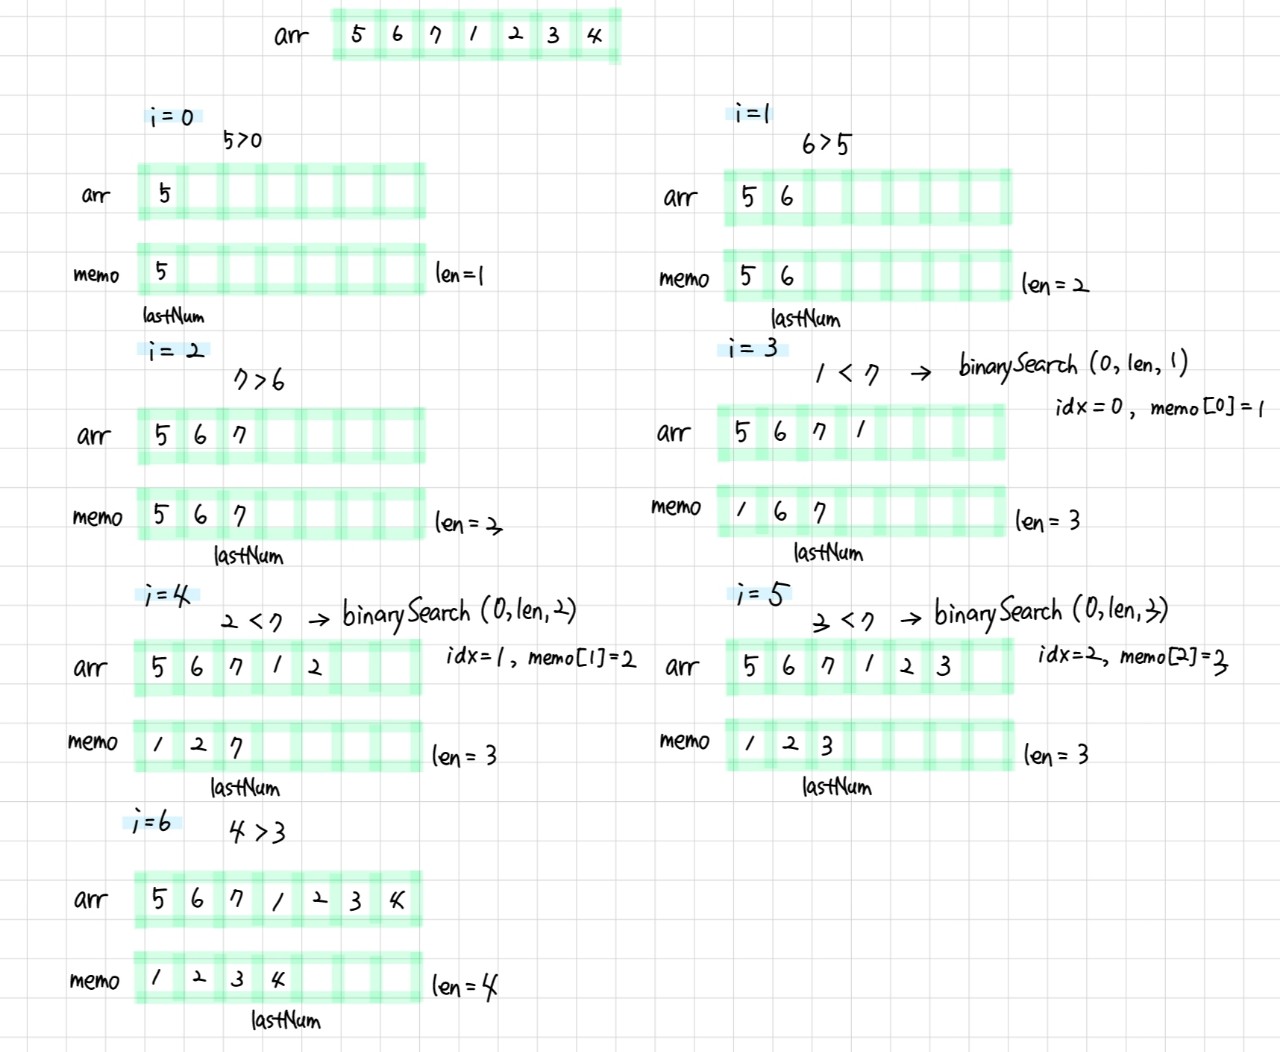 arr 5 6 7 1 2 3 4
i=0
5>0
arr 5
memo 5 len=1
lastNum
i=1
6>5
arr 5 6
memo 5 6 len=2
lastNum
i=2
7>6
arr 5 6 7
memo 5 6 7 len=3
lastNum
i=3
1<7 → binarySearch (0, len, 1)
idx=0, memo[0]=1
arr 5 6 7 1
memo 1 6 7 len=3
lastNum
i=4
2<7 → binarySearch (0, len, 2)
idx=1, memo[1]=2
arr 5 6 7 1 2
memo 1 2 7 len=3
lastNum
i=5
3<7 → binarySearch (0, len, 3)
idx=2, memo[2]=3
arr 5 6 7 1 2 3
memo 1 2 3 len=3
lastNum
i=6
4>3
arr 5 6 7 1 2 3 4
memo 1 2 3 4 len=4
lastNum